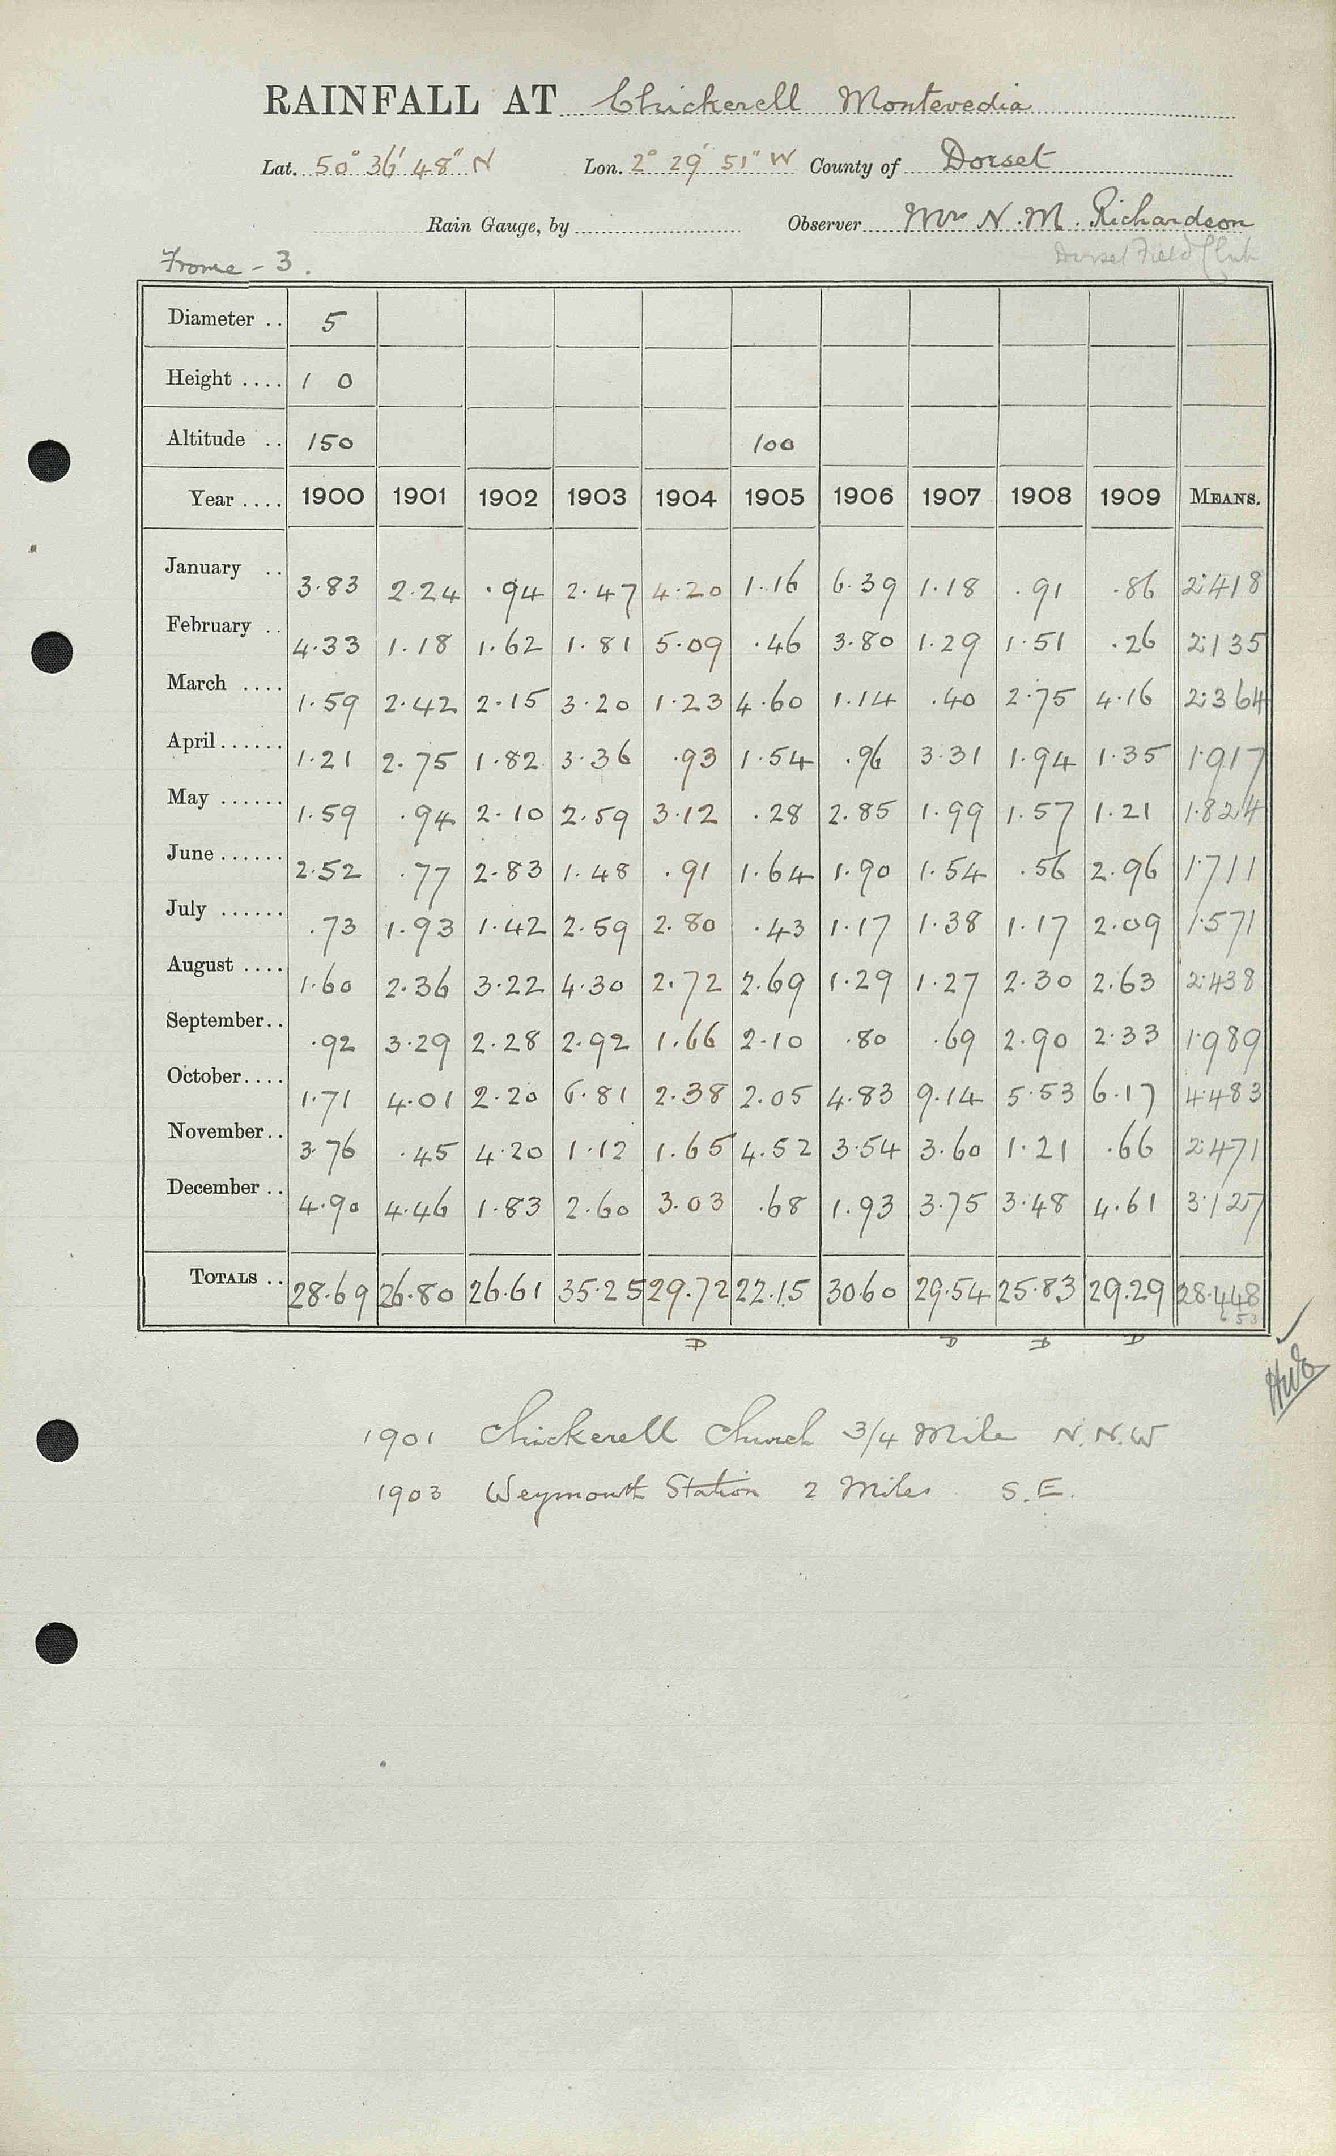 RAINFALL AT Chickerell Montevedia
Lat. 50° 36' 48" N Lon. 2° 29' 51" W County of Dorset
Rain Gauge, by Observer Mr N. M. Richardson
Frome - 3. Dorset Field Club
Diameter .. 5
Height .... 1 0
Altitude .. 150 100
Year .... 1900 1901 1902 1903 1904 1905 1906 1907 1908 1909 MEANS.
January .. 3.83 2.24 .94 2.47 4.20 1.16 6.39 1.18 .91 .86 2.418
February .. 4.33 1.18 1.62 1.81 5.09 .46 3.80 1.29 1.51 .26 2.135
March .... 1.59 2.42 2.15 3.20 1.23 4.60 1.14 .40 2.75 4.16 2.364
April ...... 1.21 2.75 1.82 3.36 .93 1.54 .96 3.31 1.94 1.35 1.917
May ...... 1.59 .94 2.10 2.59 3.12 .28 2.85 1.99 1.57 1.21 1.824
June ...... 2.52 .77 2.83 1.48 .91 1.64 1.90 1.54 .56 2.96 1.711
July ...... .73 1.93 1.42 2.59 2.80 .43 1.17 1.38 1.17 2.09 1.571
August .... 1.60 2.36 3.22 4.30 2.72 2.69 1.29 1.27 2.30 2.63 2.438
September .. .92 3.29 2.28 2.92 1.66 2.10 .80 .69 2.90 2.33 1.989
October .... 1.71 4.01 2.20 6.81 2.38 2.05 4.83 9.14 5.53 6.17 4.483
November .. 3.76 .45 4.20 1.12 1.65 4.52 3.54 3.60 1.21 .66 2.471
December .. 4.90 4.46 1.83 2.60 3.03 .68 1.93 3.75 3.48 4.61 3.127
TOTALS .. 28.69 26.80 26.61 35.25 29.72 22.15 30.60 29.54 25.83 29.29 28.448
D D D D
1901 Chickerell Church 3/4 Mile N.N.W
1903 Weymouth Station 2 Miles S.E.